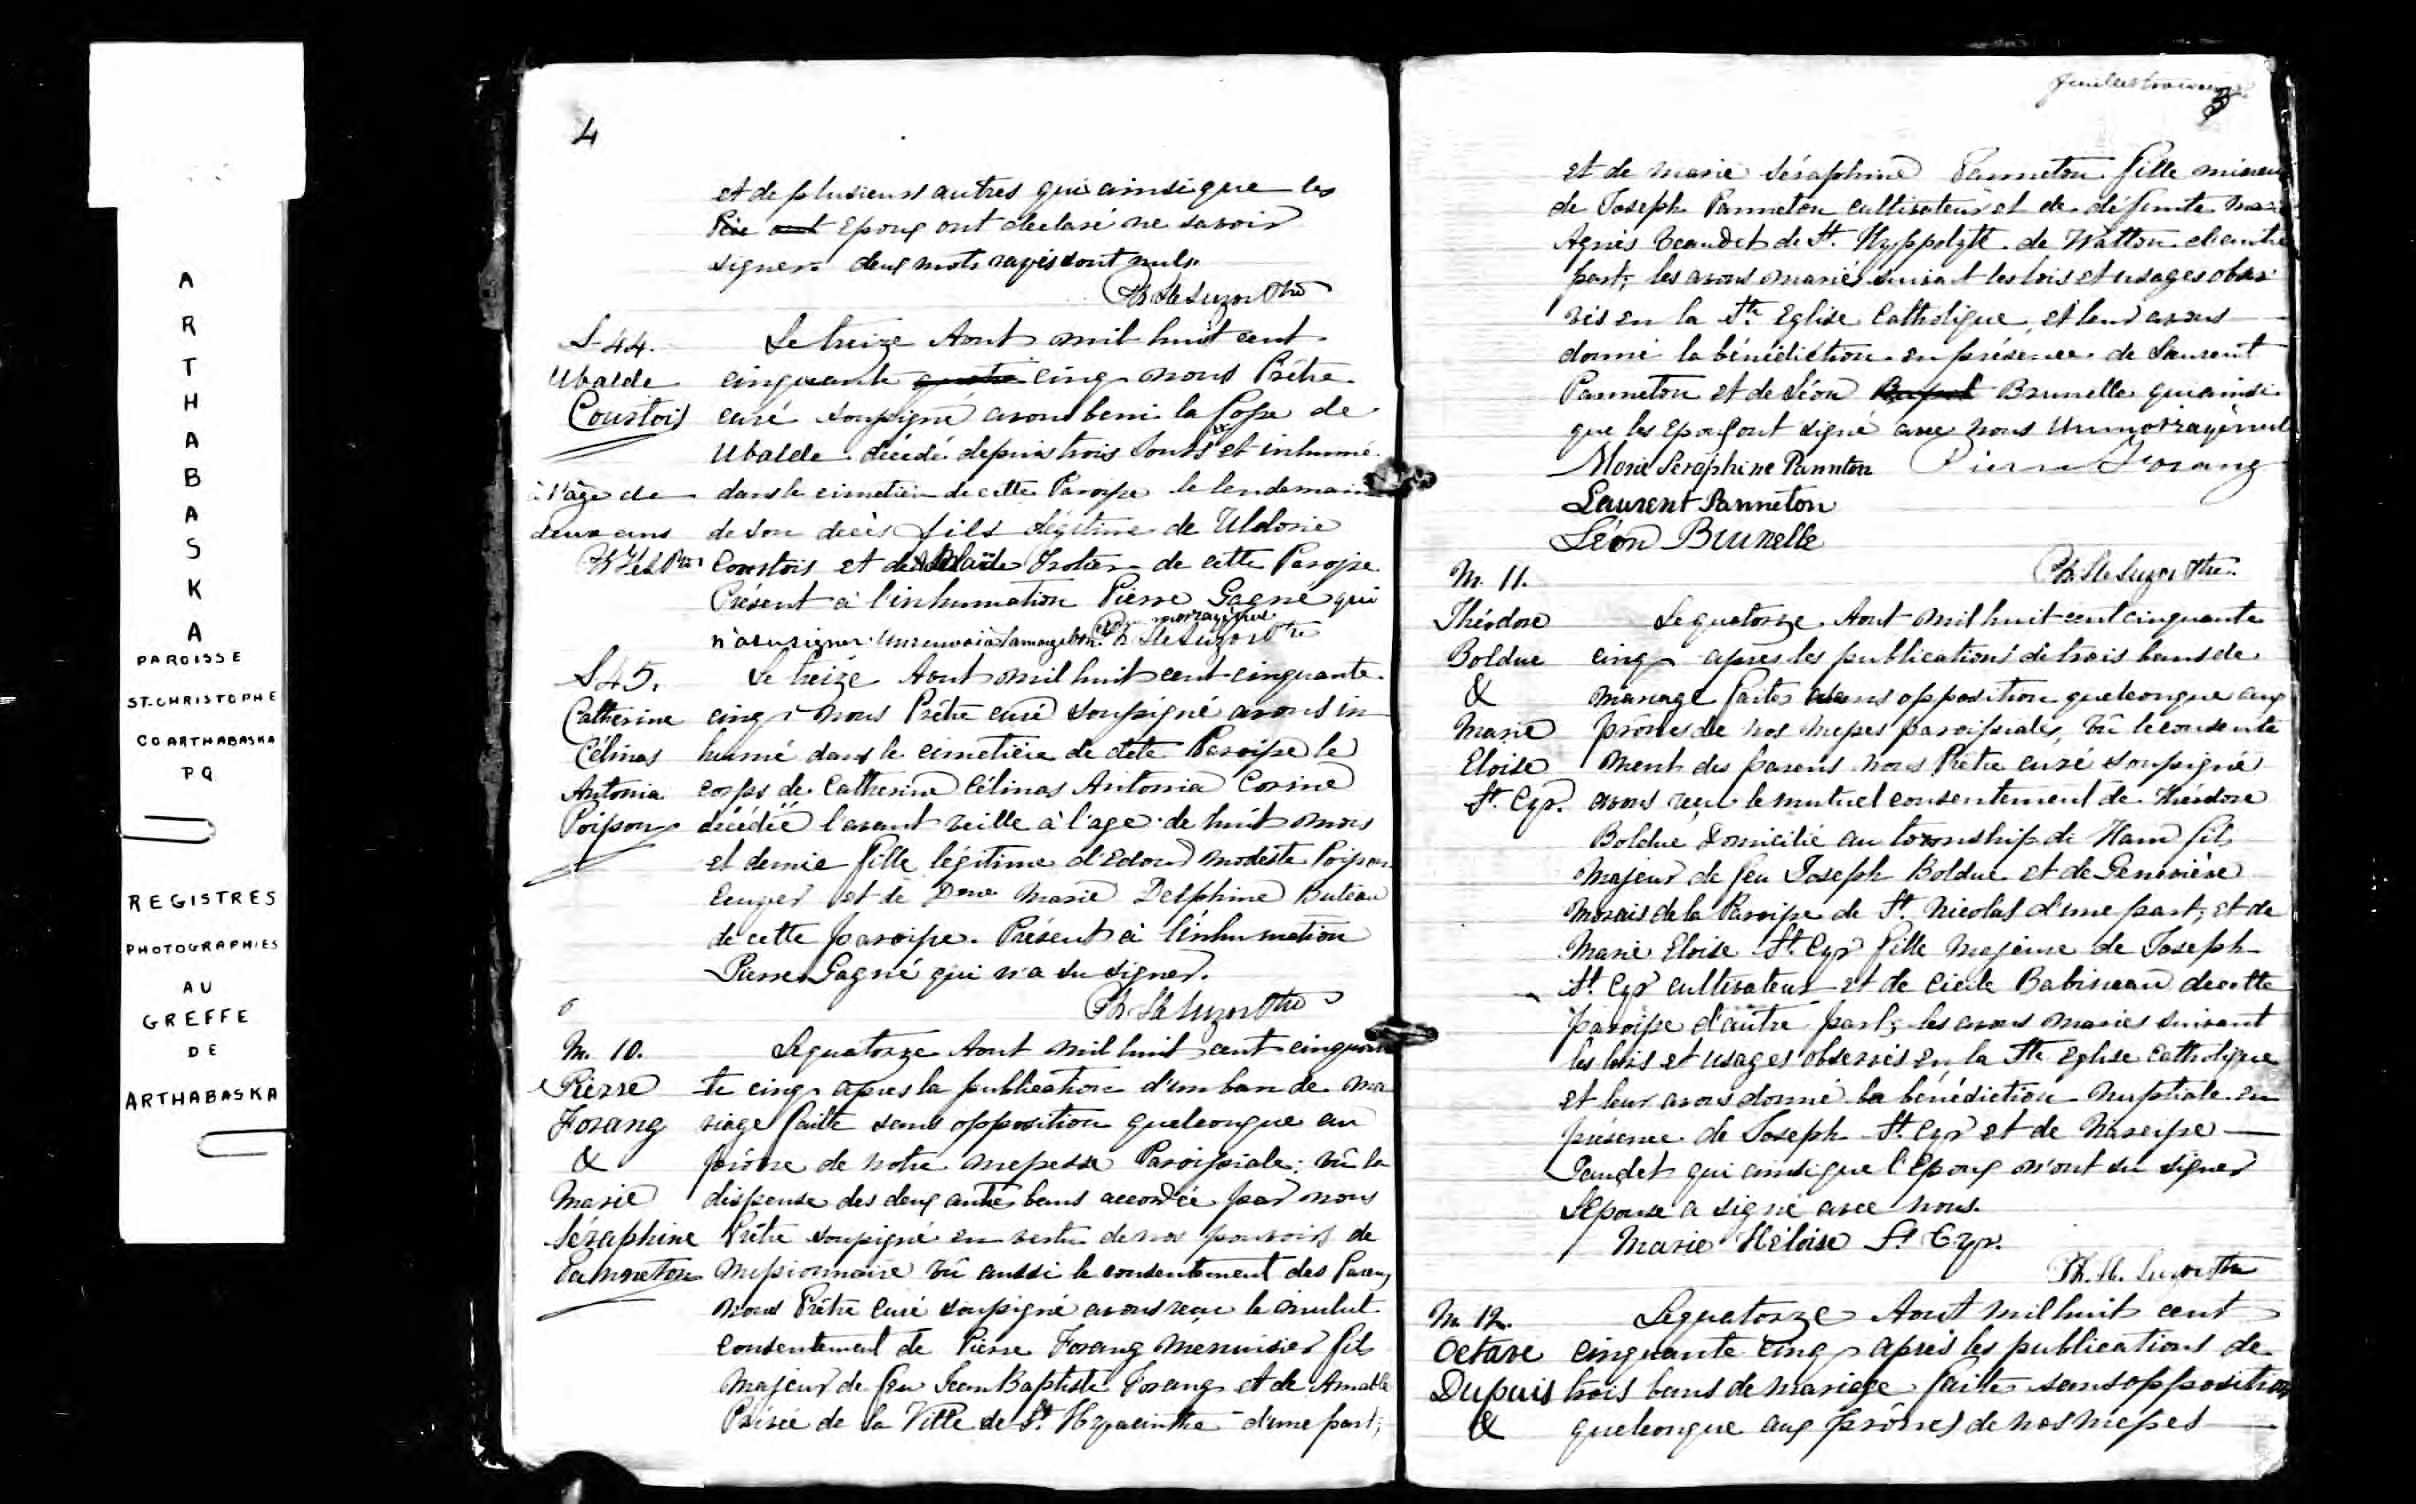 A
R
T
H
A
B
A
S
K
A
PAROISSE
ST-CHRISTOPHE
CO ARTHABASKA
PQ
REGISTRES
PHOTOGRAPHIES
AU
GREFFE
DE
ARTHABASKA
4
et de plusieurs autres qui ainsi que les
Epoux ont declaré ne savoir
signer. deux mots rayés sont nuls.
Ph. H. Suzor Ptre
S-44.
Ubalde
Courtois
à l'age de
deux ans
Le treize Aout mil huit cent
cinquante quatre cinq nous Prêtre
curé soussigné avons beni la fosse de
Ubalde décédé depuis trois Jours et inhumé
dans le cimetière de cette Paroisse le lendemain
de son decès fils Légitime de Uldoric
Courtois et de Adelaïde Trotier de cette Paroisse
Présent à l'inhumation Pierre Gagné qui
n'a su signer. un renvoi à la marge bon. mot rayé nul
Ph. H. Suzor Ptre
S 45.
Catherine
Célinas
Antonia
Poisson
Le treize Aout mil huit cent cinquante
cinq nous Prêtre curé soussigné avons in
humé dans le cimetière de cette Paroisse le
corps de Catherine Célinas Antonia Corine
décédée l'avant veille à l'age de huit mois
et demie fille légitime d'Edouard modeste Poisson
Ecuyer et de Dme Marie Delphine Buteau
de cette paroisse. Présent à l'inhumation
Pierre Gagné qui n'a su signer.
Ph. H. Suzor Ptre
M. 10.
Pierre
Forang
&
Marie
Séraphine
Panneton
Le quatorze Aout mil huit cent cinquan
te cinq après la publication d'un ban de ma
riage faite sans opposition quelconque au
prône de notre messe Paroissiale; vû la
dispense des deux autres bans accordée par nous
Prêtre soussigné en vertu de nos pouvoirs de
Missionnaire vû aussi le consentement des Parens
nous Prêtre curé soussigné avons reçu le mutuel
consentement de Pierre Forang menuisier fils
majeur de feu Jean Baptiste Forang et de Amable
de la Ville de St. Hyacinthe d'une part;
5
et de marie Séraphine Panneton fille mineure
de Joseph Panneton cultivateur et de défunte Marie
Agnès Beaudet de St. Hyppolyte de Wotton d'autre
part; les avons mariés suivant les lois et usages obser
vés en la Ste Eglise Catholique, et leur avons
donné la bénédiction en présence de Laurent
Panneton et de Léon Brunelle qui ainsi
que les Epoux ont signé avec nous un mot rayé nul
Marie Seraphine Pannton Pierre Forang
Laurent Panneton
Léon Brunelle
Ph. H. Suzor Ptre.
M. 11.
Théodore
Bolduc
&
Marie
Eloise
St. Cyr.
Le quatorze Aout mil huit cent cinquante
cinq après les publications de trois bans de
mariage faites sans opposition quelconque aux
prônes de nos messes paroissiales, vû le consente
ment des parens nous Prêtre curé soussigné
avons reçu le mutuel consentement de Théodore
Bolduc Domicilié au township de Ham fils
majeur de feu Joseph Bolduc et de Geneviève
Morais de la Paroisse de St. Nicolas d'une part; et de
Marie Eloise St. Cyr fille majeure de Joseph
St. Cyr cultivateur et de Cécile Babineau de cette
paroisse d'autre part; les avons mariés suivant
les lois et usages observés en la Ste Eglise catholique
et leur avons donné la bénédiction nuptiale en
présence de Joseph St. Cyr et de Narcisse
Gaudet qui ainsi que l'Epoux n'ont su signer
L'épouse a signé avec nous.
Marie Héloise St Cyr.
Ph. H. Suzor Ptre
M. 12.
Octave
Dupuis
&
Le quatorze Aout mil huit cent
cinquante cinq après les publications de
trois bans de mariage faites sans opposition
quelconque aux prônes de nos messes